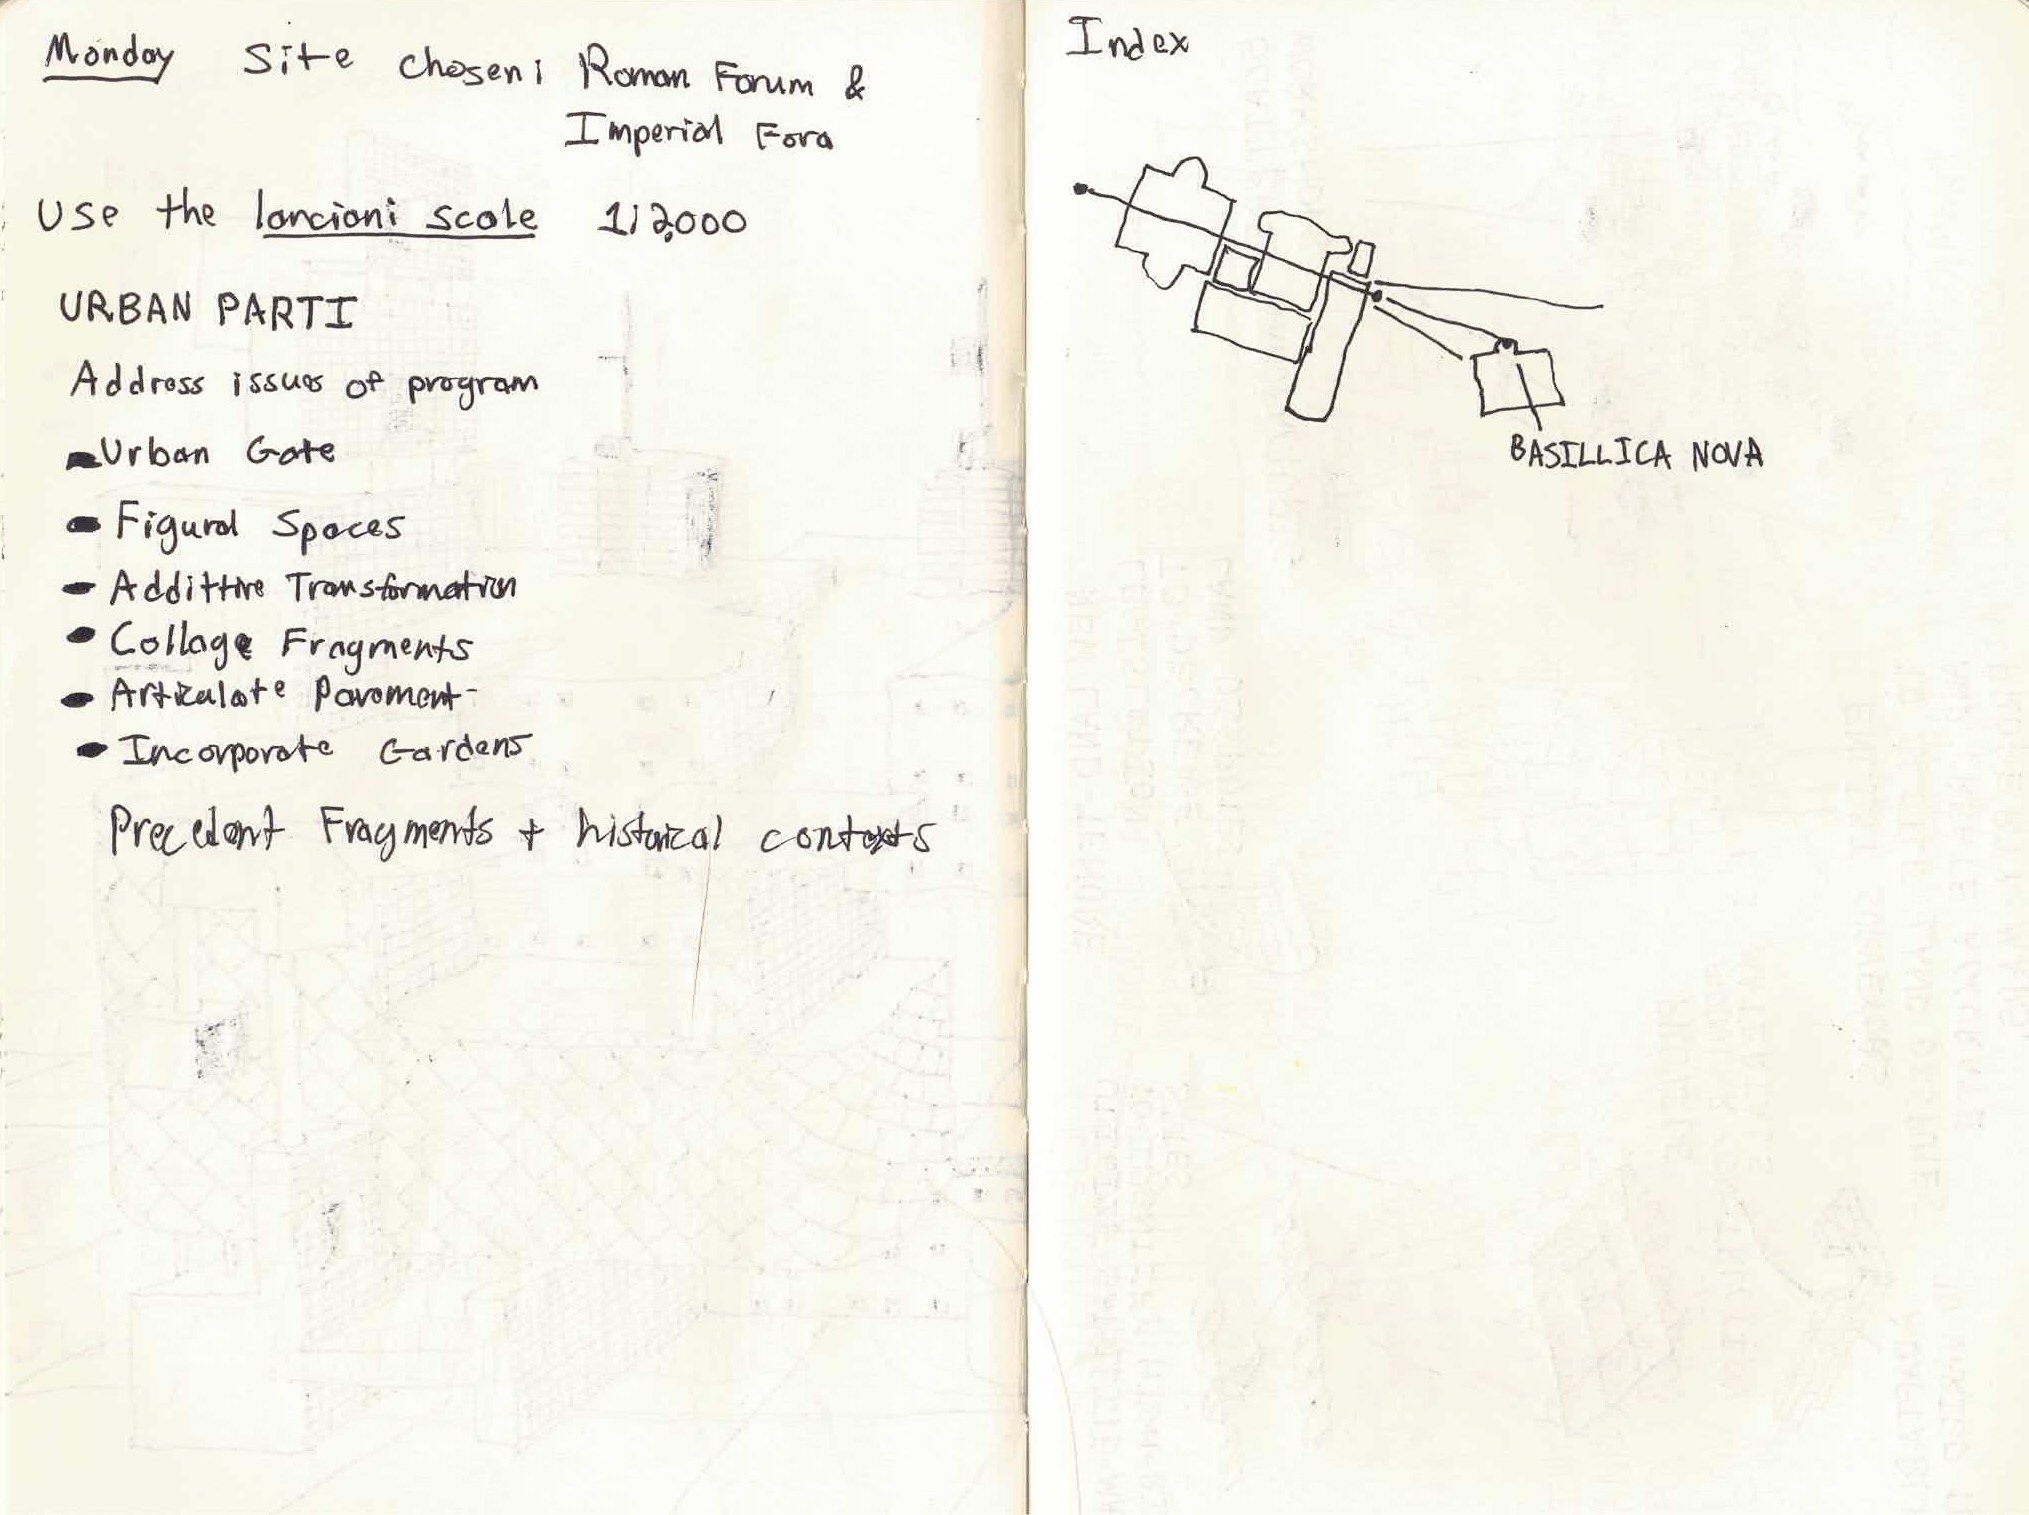 Monday Site chosen: Roman Forum &
Imperial Fora
Use the lancioni scale 1:2,000
URBAN PARTI
Address issues of program
Urban Gate
Figural Spaces
Addittive Transformation
Collage Fragments
Articulate Pavement
Incorporate Gardens
Precedent Fragments + historical contexts
Index
BASILLICA NOVA